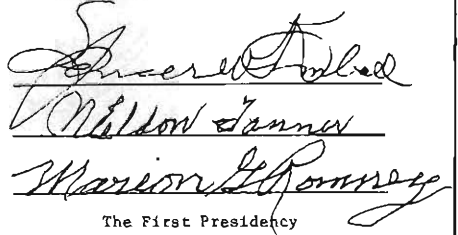 Spencer W Kimball
N Eldon Tanner
Marion G Romney
The First Presidency